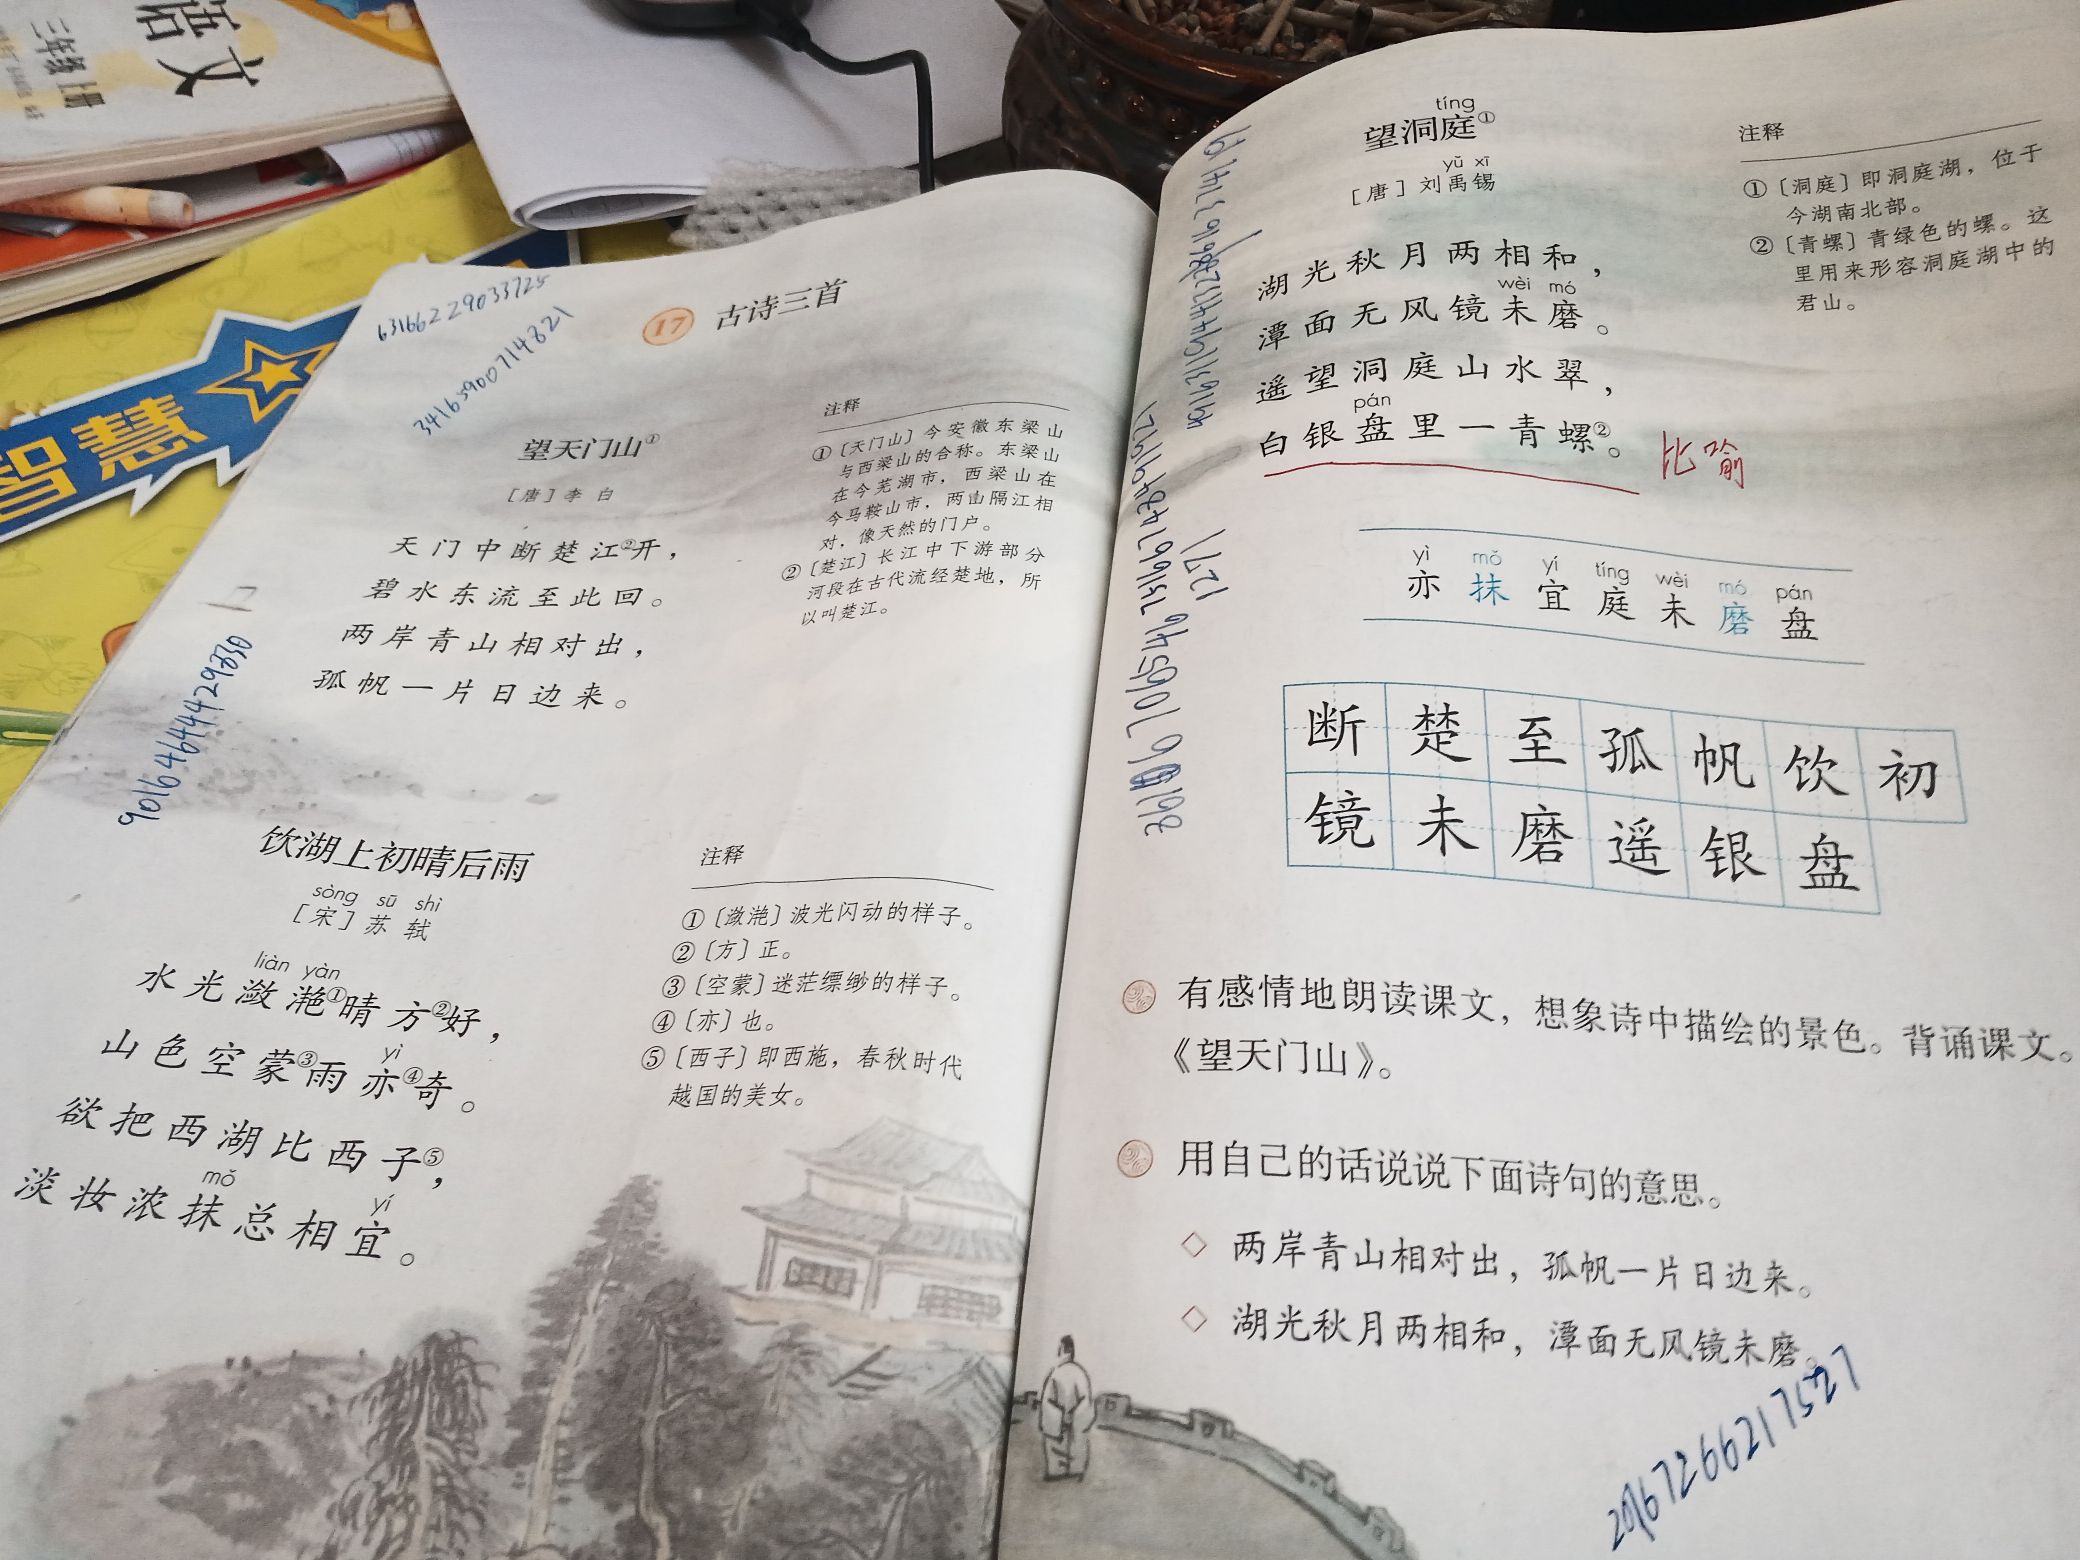 语文
三年级上册
智慧
63166229033725
17 古诗三首
望天门山①
[唐]李白
天门中断楚江②开，
碧水东流至此回。
两岸青山相对出，
孤帆一片日边来。
注释
①〔天门山〕今安徽东梁山
与西梁山的合称。东梁山
在今芜湖市，西梁山在
今马鞍山市，两山隔江相
对，像天然的门户。
②〔楚江〕长江中下游部分
河段在古代流经楚地，所
以叫楚江。
饮湖上初晴后雨
sòng sū shì
[宋]苏轼
liàn yàn
水光潋滟①晴方②好，
yì
山色空蒙③雨亦④奇。
欲把西湖比西子⑤，
mǒ yí
淡妆浓抹总相宜。
注释
①〔潋滟〕波光闪动的样子。
②〔方〕正。
③〔空蒙〕迷茫缥缈的样子。
④〔亦〕也。
⑤〔西子〕即西施，春秋时代
越国的美女。
tíng
望洞庭①
yǔ xī
[唐]刘禹锡
湖光秋月两相和，
wèi mó
潭面无风镜未磨。
遥望洞庭山水翠，
pán
白银盘里一青螺②。
比喻
注释
①〔洞庭〕即洞庭湖，位于
今湖南北部。
②〔青螺〕青绿色的螺。这
里用来形容洞庭湖中的
君山。
1271
yì mǒ yí tíng wèi mó pán
亦 抹 宜 庭 未 磨 盘
断 楚 至 孤 帆 饮 初
镜 未 磨 遥 银 盘
有感情地朗读课文，想象诗中描绘的景色。背诵课文。
《望天门山》。
用自己的话说说下面诗句的意思。
◇ 两岸青山相对出，孤帆一片日边来。
◇ 湖光秋月两相和，潭面无风镜未磨。